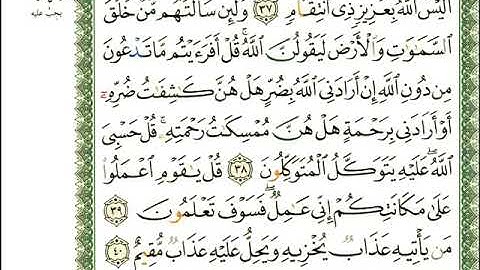 أَلَيْسَ ٱللَّهُ بِعَزِيزٍ ذِى ٱنتِقَامٍ ٣٧ وَلَئِن سَأَلْتَهُم مَّنْ خَلَقَ
ٱلسَّمَٰوَٰتِ وَٱلْأَرْضَ لَيَقُولُنَّ ٱللَّهُ ۚ قُلْ أَفَرَءَيْتُم مَّا تَدْعُونَ
مِن دُونِ ٱللَّهِ إِنْ أَرَادَنِىَ ٱللَّهُ بِضُرٍّ هَلْ هُنَّ كَٰشِفَٰتُ ضُرِّهِۦٓ
أَوْ أَرَادَنِى بِرَحْمَةٍ هَلْ هُنَّ مُمْسِكَٰتُ رَحْمَتِهِۦ ۚ قُلْ حَسْبِىَ
ٱللَّهُ ۖ عَلَيْهِ يَتَوَكَّلُ ٱلْمُتَوَكِّلُونَ ٣٨ قُلْ يَٰقَوْمِ ٱعْمَلُوا۟
عَلَىٰ مَكَانَتِكُمْ إِنِّى عَٰمِلٌ ۖ فَسَوْفَ تَعْلَمُونَ ٣٩
مَن يَأْتِيهِ عَذَابٌ يُخْزِيهِ وَيَحِلُّ عَلَيْهِ عَذَابٌ مُّقِيمٌ ٤٠
يجب عليه